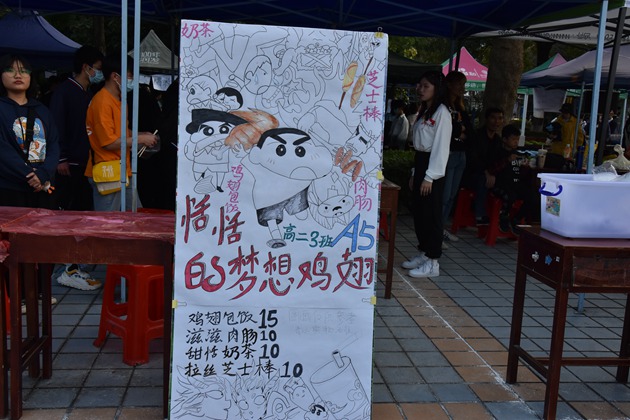 奶茶
芝士棒
鸡翅
肉肠
恬恬
高二3班 A5
的梦想鸡翅
鸡翅包饭 15
滋滋肉肠 10
甜恬奶茶 10
拉丝芝士棒 10